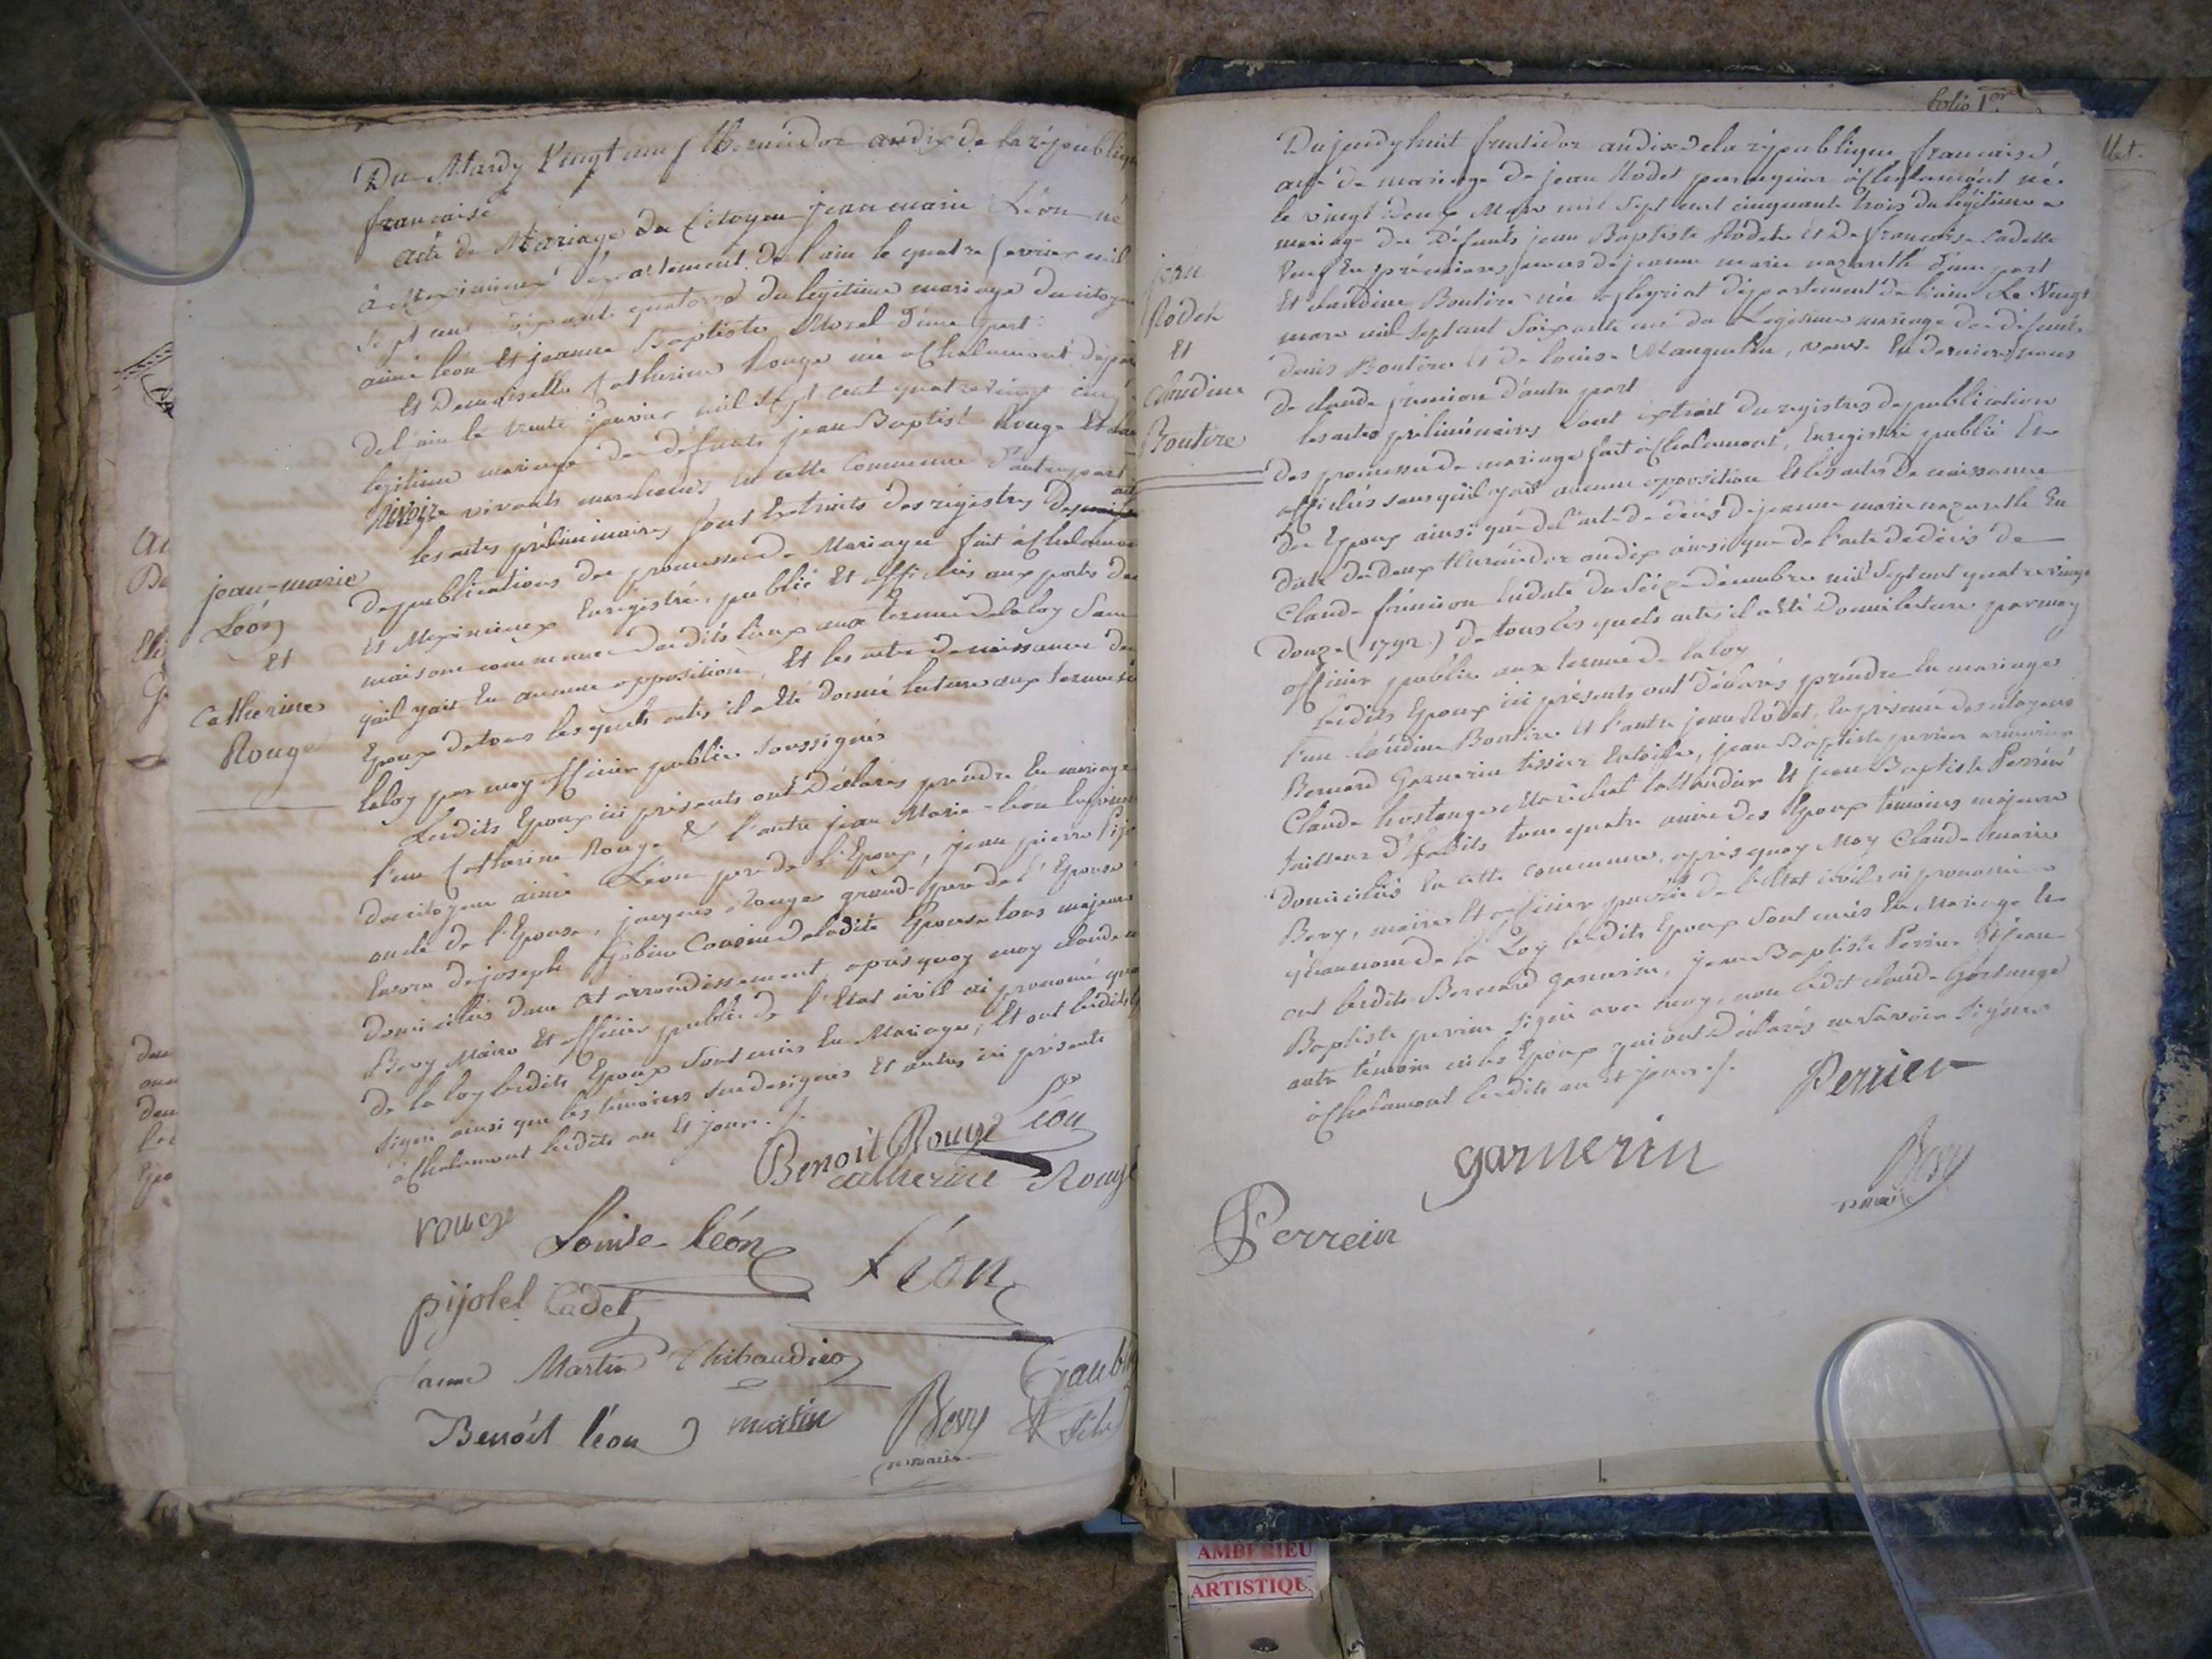 Du Mardy Vingt neuf thermidor an dix de la république
française
acte de Mariage du Citoyen jean marie Léon né
à Meximieux département de l'ain le quatre fevrier mil
sept cent soixante quatorze du legitime mariage du citoyen
aimé léon Et jeanne Baptiste Morel d'une part
Et Demoiselle Catherine Rouge née à Chalamont dépar
del'ain le trente janvier mil sept cent quatrevingt cinq
legitime mariage de défunts jean Baptist Rouge Et
Rivoire vivants marchands en cette Commune d'autre part
les actes préliminaires sont Extraits des régistres
depublications des promesses de Mariages fait à Chalamon
Et Meximieux Enregistré, publié Et affichés aux portes des
maisons communes desdits lieux aux termes delaloy Sans
quil yait Eu aucune opposition, Et les actes de naissance des
Epoux detous lesquels actes il a Eté donné lecture aux termes de
laloy par moy officier public soussignés
Lesdits Epoux ici présents ont Déclarés prendre En mariage
l'une Catherine Rouge & l'autre jean Marie Léon En présence
des citoyens aimé Léon pere de l'Epoux, jean pierre Pijo
oncle de l'Epouse, jacques Rouge grand-pere de l'Epouse
Encore de joseph Cousin deladite Epouse tous majeurs
domiciliés dans cet arrondissement, après quoy moy claude m
Bevy Maire Et officier public de l'Etat civil ai prononcé qu'au
de la loy lesdits Epoux Sont unis En Mariage, Et ont lesdits
signé ainsi que les temoins susdesignés Et autres ici présents
à Chalamont lesdits an Et jour ./.
jean-marie
Léon
Et
Catherine
Rouge
Léon
Benoit Rouge
catherine Rouge
rouge
Louise léon
Léon
pijolet Cadet
Martin Thibaudier
Benoît léon
martin
Bevy
maire
fils
folio 1er
Du jeudy huit fructidor an dix de la république française
acte de mariage de jean Rodet à Chalamont né
le vingt deux Mars mil sept cent cinquante trois du légitime
mariage de défunts jean Baptiste Rodet Et de françoise Cadette
Veuf En prémieres noces de jeanne marie nazareth d'une part
Et claudine Boutire née à Département de l'ain Le Vingt
mars mil Sept cent Soixante un du Légitime mariage de défunts
denis Boutire Et de louise Manguelin, veuve En dernieres noces
de claude frémion d'autre part
les actes préliminaires sont Extrait du registres depublication
des promesses de mariage fait à Chalamont, Enregistré publié Et
affichés sans qu'il yait aucune opposition Et les actes de naissance
des Epoux ainsi que de l'acte de décès de jeanne marie nazareth En
date du deux thermidor an dix ainsi que de l'acte de décès de
Claude frémion En date du Seize décembre mil Sept cent quatrevingt
douze (1792.) de tous les quels actes il a Eté Donné lecture par moy
officier public aux termes de la loy
Lesdits Epoux ici présents ont Déclarés prendre En mariage
l'une Claudine Boutire Et l'autre jean Rodet, En présence des citoyens
Bernard Garnerin tissier En toile, jean Baptiste perrier armurier
Claude hostange Maréchal taillandier Et jean Baptiste Perrein
tailleur d'habits tous quatre amis des Epoux témoins majeurs
Domiciliés En cette commune, après quoy Moy Claude marie
Bevy, maire Et officier public de l'Etat civil ai prononcé
qu'au nom de la Loy lesdits Epoux Sont unis En Mariage Et
ont lesdits Bernard garnerin, jean Baptiste Perrier Et jean
Baptiste perrein signé avec moy, non ledit claude hostange
autre témoin ni les Epoux qui ont Déclarés ne Savoir Signer
à Chalamont lesdits an Et jour ./.
jean
Rodet
Et
claudine
Boutire
Perrier
garnerin
Bevy
maire
Perrein
AMBERIEU
ARTISTIQU